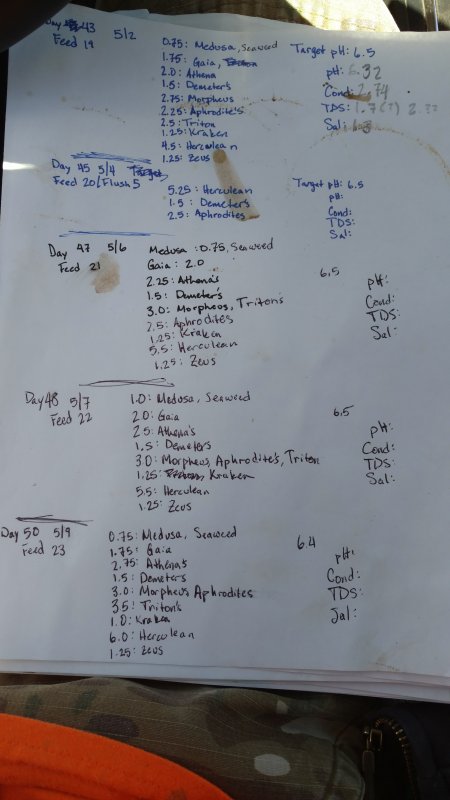 Day 43 5/2
Feed 19
0.75: Medusa, Seaweed
1.75: Gaia,
2.0: Athena
1.5: Demeter's
2.75: Morpheus
2.25: Aphrodite's
2.5: Triton
1.25: Kraken
4.5: Herculean
1.25: Zeus
Target pH: 6.5
pH: 6.32
Cond: 2.74
TDS: 1.7(?) 2.22
Sal:
Day 45 5/4
Feed 20/Flush 5
5.25: Herculean
1.5: Demeter's
2.5: Aphrodites
Target pH: 6.5
pH:
Cond:
TDS:
Sal:
Day 47 5/6
Feed 21
Medusa: 0.75, Seaweed
Gaia: 2.0
2.25: Athena's
1.5: Demeter's
3.0: Morpheus, Triton's
2.5: Aphrodites
1.25: Kraken
5.5: Herculean
1.25: Zeus
6.5
pH:
Cond:
TDS:
Sal:
Day 48 5/7
Feed 22
1.0: Medusa, Seaweed
2.0: Gaia
2.5: Athena's
1.5: Demeters
3.0: Morpheus, Aphrodite's, Triton
1.25: Kraken
5.5: Herculean
1.25: Zeus
6.5
pH:
Cond:
TDS:
Sal:
Day 50 5/9
Feed 23
0.75: Medusa, Seaweed
1.75: Gaia
2.75: Athena's
1.5: Demeter's
3.0: Morpheus Aphrodites
3.5: Triton's
1.0: Kraken
6.0: Herculean
1.25: Zeus
6.4
pH:
Cond:
TDS:
Sal: